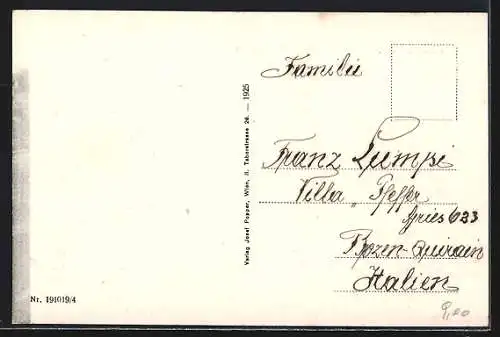 Familie
Franz Lumpi
Villa „ Pfeffer
Gries 623
Bozen-Quirain
Italien
Verlag Josef Popper, Wien, II. Taborstrasse 26. — 1925
Nr. 191019/4
9,00